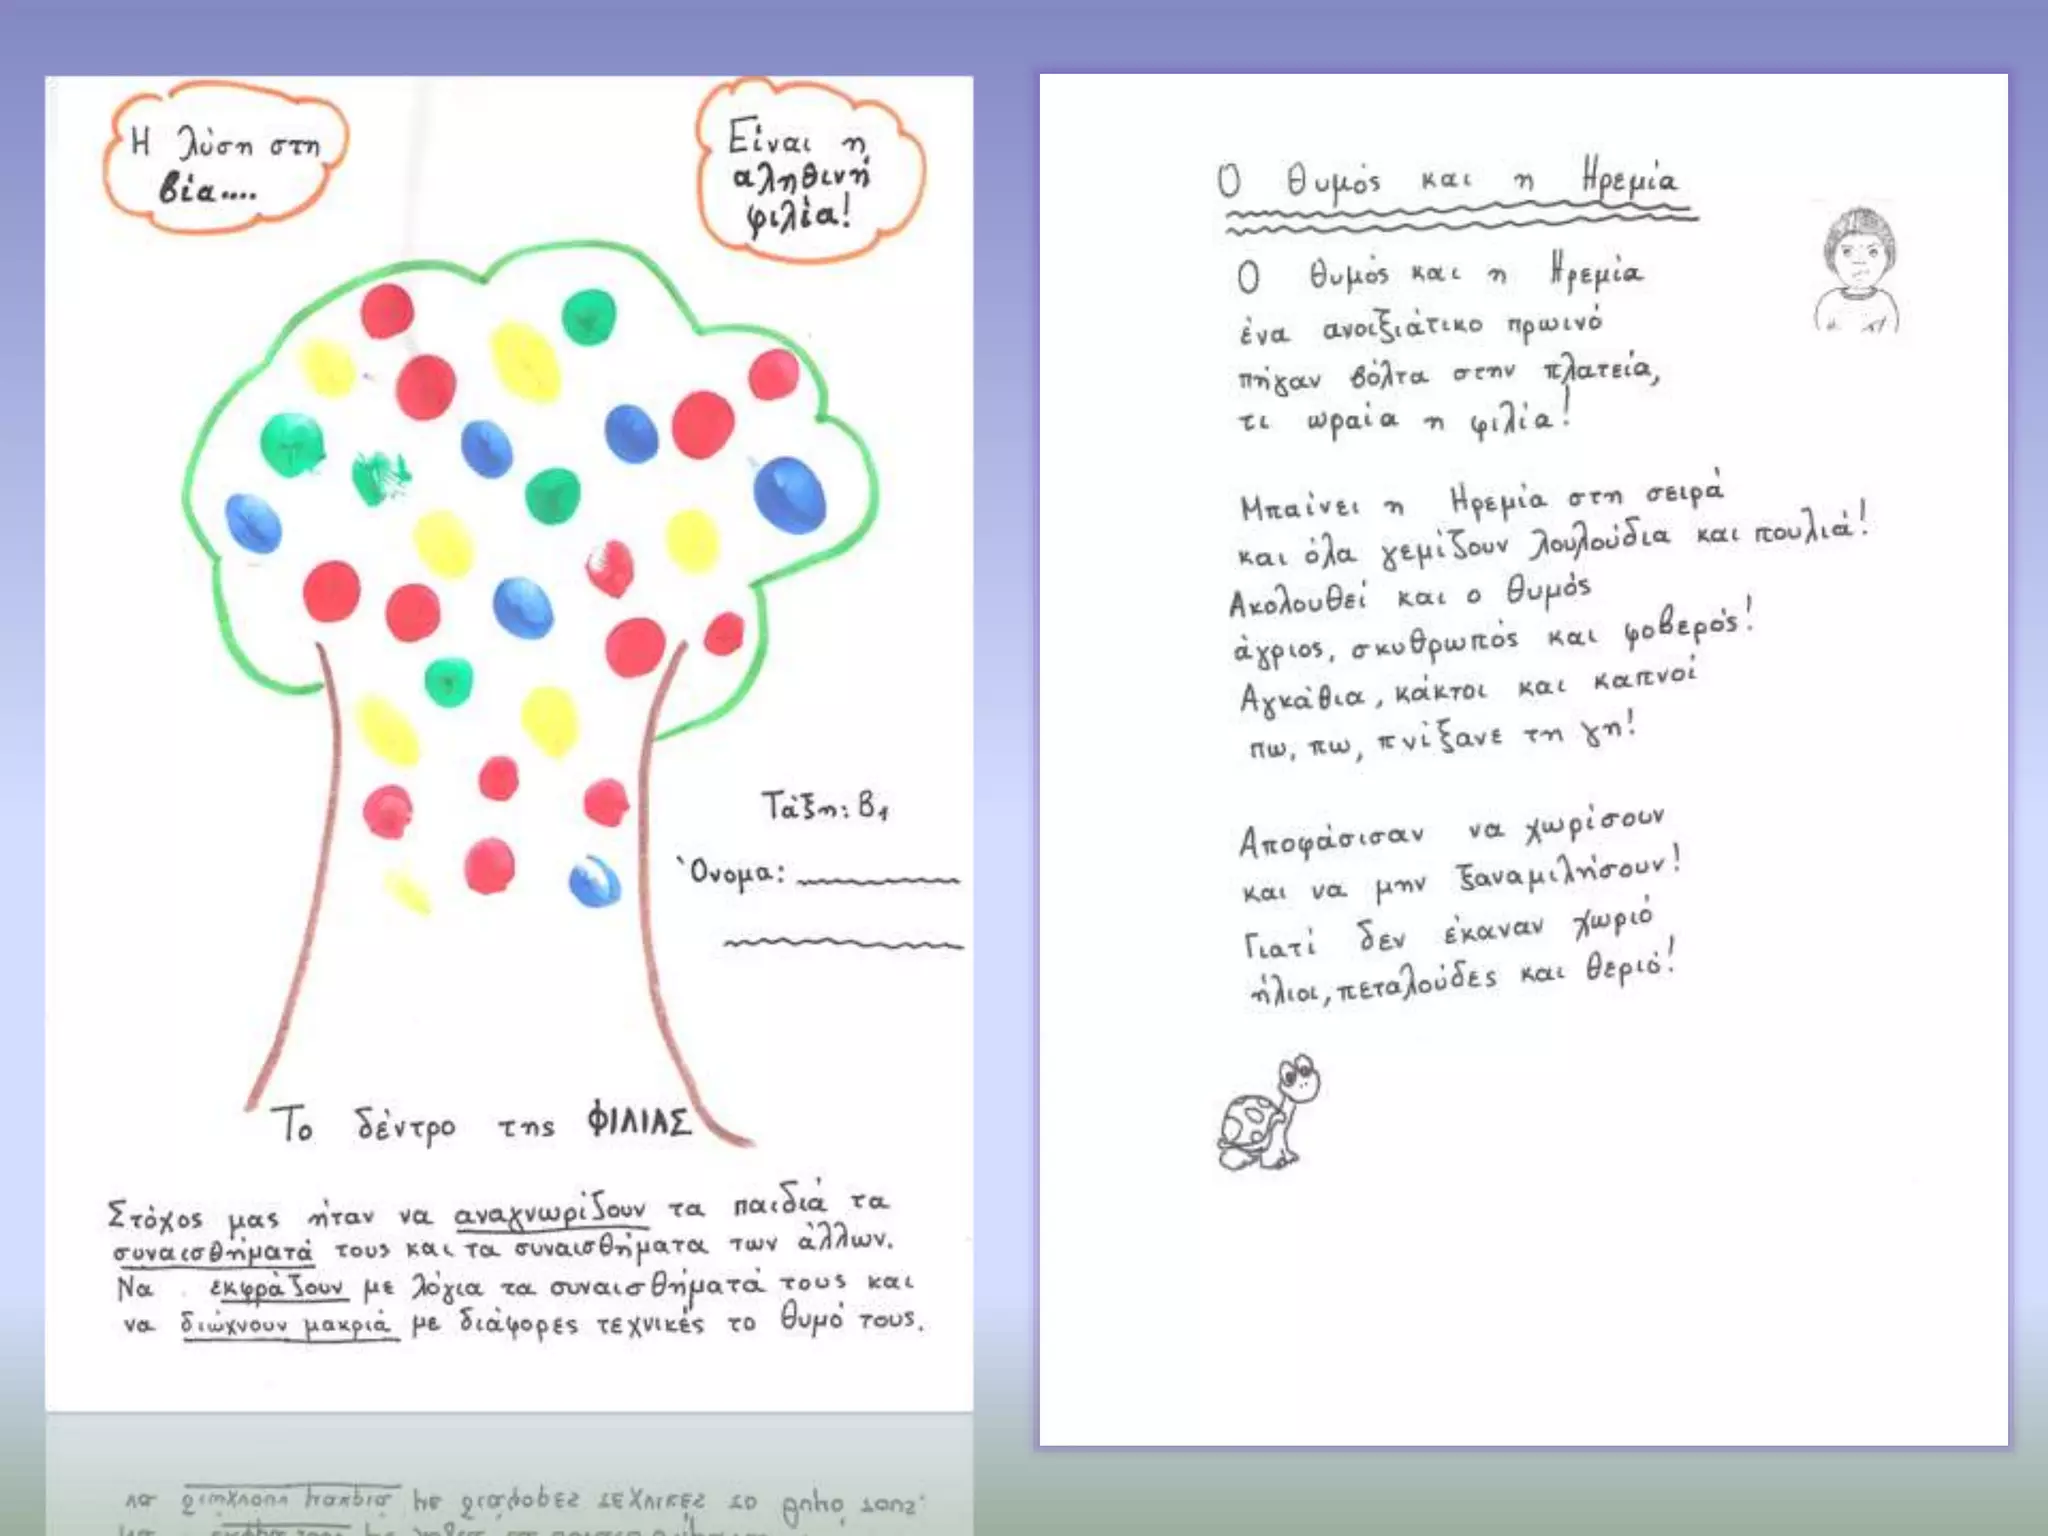 Η λύση στη
βία....
Είναι η
αληθινή
φιλία!
Τάξη: Β1
Όνομα:
Το δέντρο της ΦΙΛΙΑΣ
Στόχος μας ήταν να αναγνωρίζουν τα παιδιά τα
συναισθήματά τους και τα συναισθήματα των άλλων.
Να εκφράζουν με λόγια τα συναισθήματά τους και
να διώχνουν μακριά με διάφορες τεχνικές το θυμό τους.
Ο Θυμός και η Ηρεμία
Ο θυμός και η Ηρεμία
ένα ανοιξιάτικο πρωινό
πήγαν βόλτα στην πλατεία,
τι ωραία η φιλία!
Μπαίνει η Ηρεμία στη σειρά
και όλα γεμίζουν λουλούδια και πουλιά!
Ακολουθεί και ο θυμός
άγριος, σκυθρωπός και φοβερός!
Αγκάθια, κάκτοι και καπνοί
πω, πω, πνίξανε τη γη!
Αποφάσισαν να χωρίσουν
και να μην ξαναμιλήσουν!
Γιατί δεν έκαναν χωριό
ήλιοι, πεταλούδες και θεριό!